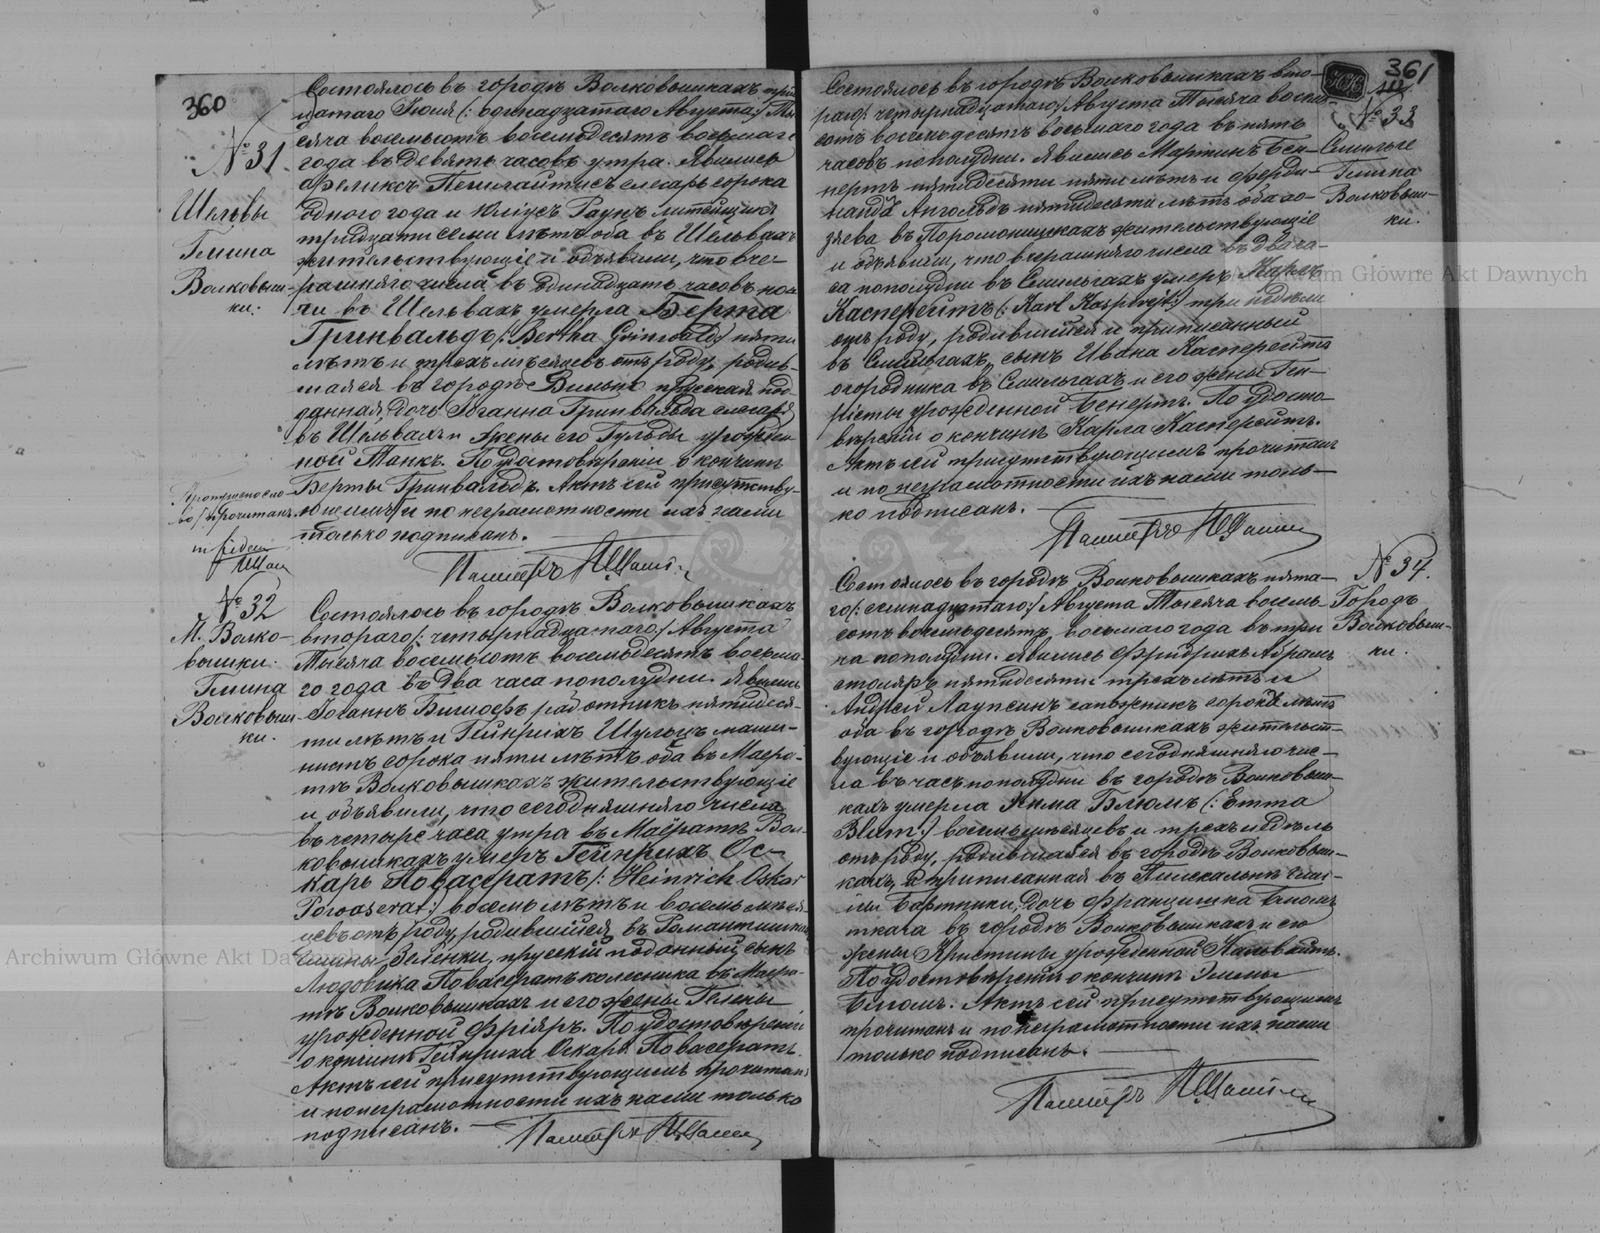 360
№ 31.
Шельвы
Гмина
Волковыш-
ки.
Состоялось въ городѣ Волковышкахъ трид-
цатаго Июля (: одиннадцатаго Августа:) Ты-
сяча восемьсотъ восемьдесятъ восьмаго
года въ девять часовъ утра. Явились
Феликсъ слесарь сорока
одного года и Юліусъ Раунъ литейщикъ
тридцати семи лѣтъ оба въ Шельвахъ
жительствующіе и объявили, что вче-
рашняго числа въ одинадцать часовъ но-
чи въ Шельвахъ умерла Берта
Гринвальдъ (: Bertha Grinwald:) пяти
лѣтъ и трехъ мѣсяцевъ отъ роду, родив-
шаяся въ городѣ Вильно прусская под-
данная, дочь Іоганна Гринвальда слесаря
въ Шельвахъ и жены его Гульды урожден-
ной Манкъ. По удостовѣреніи о кончинѣ
Берты Гринвальдъ. Актъ сей присутству-
ющимъ и по неграмотности ихъ нами
только подписанъ.
Пропущено сло-
во / прочитанъ
in fidem
Пасторъ
№ 32
М. Волко-
вышки.
Гмина
Волковыш-
ки.
Состоялось въ городѣ Волковышкахъ
втораго (: четырнадцатаго:) Августа
Тысяча восемьсотъ восемьдесятъ восьма-
го года въ два часа пополудни. Явились
Іоганнъ работникъ пятидеся-
ти лѣтъ и Гейнрихъ Шульцъ маши-
нистъ сорока пяти лѣтъ оба въ Маіора-
тѣ Волковышкахъ жительствующіе
и объявили, что сегодняшняго числа
въ четыре часа утра въ Маіоратѣ Вол-
ковышкахъ умеръ Гейнрихъ Ос-
каръ Повасератъ (: Heinrich Oskar
Powaserat:) восемь лѣтъ и восемь мѣся-
цевъ отъ роду, родившійся въ Романтишкахъ
гмины Зеленки, прусскій поданный, сынъ
Людовика Повасератъ колесника въ Маіора-
тѣ Волковышкахъ и его жены Гелены
урожденной Фріяръ. По удостовѣреніи
о кончинѣ Гейнриха Оскара Повасератъ.
Актъ сей присутствующимъ прочитанъ
и по неграмотности ихъ нами только
подписанъ.
Пасторъ
361
№ 33
Смильге
Гмина
Волковыш-
ки.
Состоялось въ городѣ Волковышкахъ вто-
раго (: четырнадцатаго:) Августа Тысяча восемь-
сотъ восемьдесятъ восьмаго года въ пять
часовъ пополудни. Явились Мартинъ Бен-
нертъ пятидесяти пяти лѣтъ и Ферди-
нандъ Ангольдъ пятидесяти лѣтъ оба хо-
зяева въ жительствующіе
и объявили, что вчерашняго числа въ два ча-
са пополудни въ Смильгахъ умеръ Карлъ
Касперейтъ (: Karl Kasperejt:) три недѣли
отъ роду, родившійся и приписанный
въ Смильгахъ, сынъ Ивана Касперейтъ
огородника въ Смильгахъ и его жены Ген-
ріеты урожденной Бенертъ. По удосто-
вѣреніи о кончинѣ Карла Касперейтъ.
Актъ сей присутствующимъ прочитанъ
и по неграмотности ихъ нами толь-
ко подписанъ.
Пасторъ
№ 34.
Городъ
Волковыш-
ки.
Состоялось въ городѣ Волковышкахъ пята-
го (: семнадцатаго:) Августа Тысяча восемь-
сотъ восемьдесятъ восьмаго года въ три
ча пополудни. Явились Фридрихъ Абрамъ
столяръ пятидесяти трехъ лѣтъ и
Андрей Лаупсинъ сапожникъ сорока лѣтъ
оба въ городѣ Волковышкахъ жительст-
вующіе и объявили, что сегодняшняго чис-
ла въ часъ пополудни въ городѣ Волковыш-
кахъ умерла Эмма Блюмъ (: Emma
Blum:) восемь мѣсяцевъ и трехъ недѣль
отъ роду, родившаяся въ городѣ Волковыш-
кахъ, и приписанная въ гми-
ны Бартники, дочь Францишка Блюмъ
ткача въ городѣ Волковышкахъ и его
жены Христины урожденной
По удостовѣреніи о кончинѣ Эммы
Блюмъ. Актъ сей присутствующимъ
прочитанъ и по неграмотности ихъ нами
только подписанъ.
Пасторъ
Archiwum Główne Akt Dawnych
Archiwum Główne Akt Dawnych